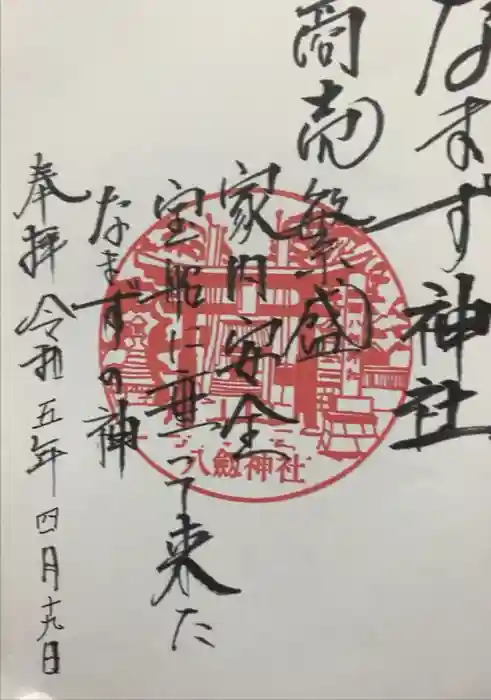 なまず神社
商売繁盛
家内安全
宝船に乗って来た
なまずの神
奉拝 令和五年四月十九日
八劔神社